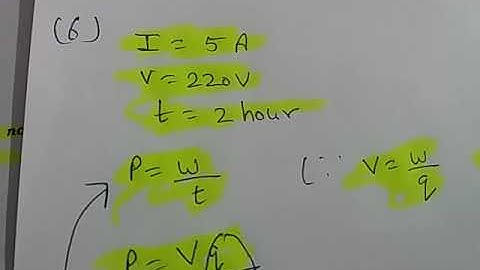 (6)
I = 5 A
V = 220V
t = 2 hour
P = w/t (∵ V = w/q
P = Vq